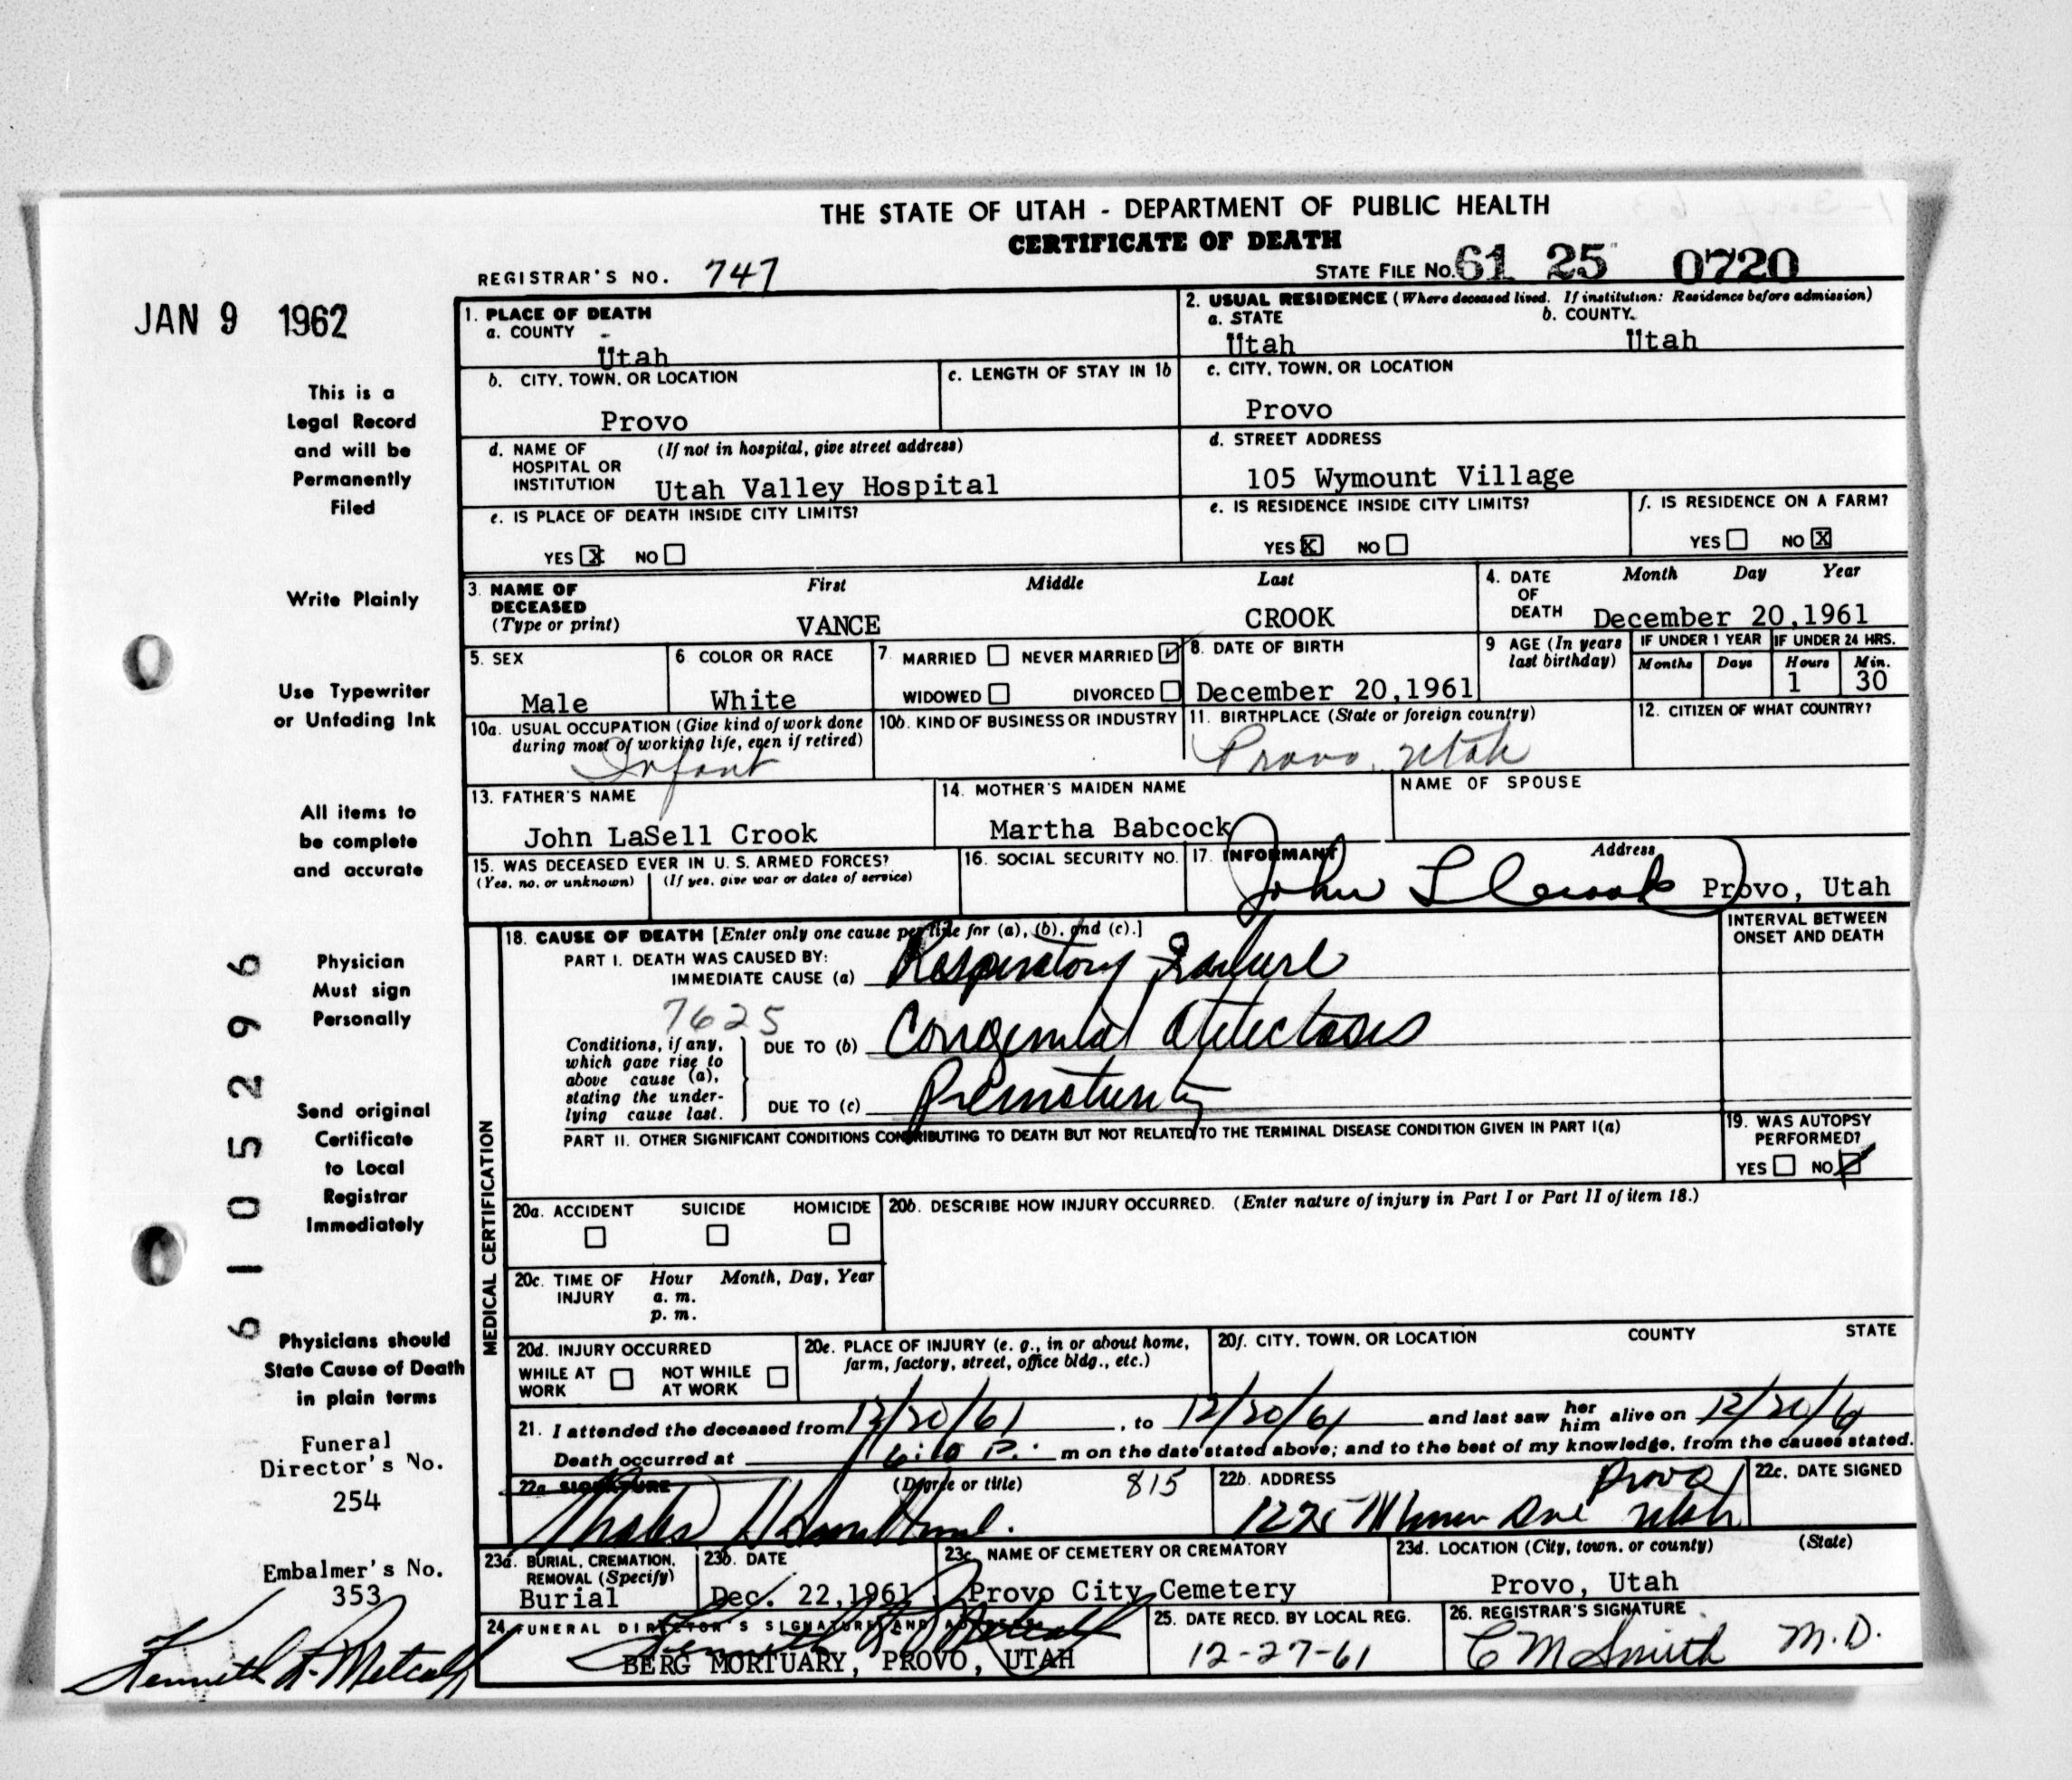 THE STATE OF UTAH - DEPARTMENT OF PUBLIC HEALTH
CERTIFICATE OF DEATH
REGISTRAR'S NO. 747
STATE FILE NO. 61 25 0720
JAN 9 1962
This is a
Legal Record
and will be
Permanently
Filed
Write Plainly
Use Typewriter
or Unfading Ink
All items to
be complete
and accurate
Physician
Must sign
Personally
Send original
Certificate
to Local
Registrar
Immediately
Physicians should
State Cause of Death
in plain terms
Funeral
Director's No.
254
Embalmer's No.
353
Kenneth L. Metcalf
6105296
1. PLACE OF DEATH
a. COUNTY
Utah
2. USUAL RESIDENCE (Where deceased lived. If institution: Residence before admission)
a. STATE b. COUNTY
Utah Utah
b. CITY, TOWN, OR LOCATION
Provo
c. LENGTH OF STAY IN 1b
c. CITY, TOWN, OR LOCATION
Provo
d. NAME OF HOSPITAL OR INSTITUTION (If not in hospital, give street address)
Utah Valley Hospital
d. STREET ADDRESS
105 Wymount Village
e. IS PLACE OF DEATH INSIDE CITY LIMITS?
YES X NO
e. IS RESIDENCE INSIDE CITY LIMITS?
YES X NO
f. IS RESIDENCE ON A FARM?
YES NO X
3. NAME OF DECEASED (Type or print)
First Middle Last
VANCE CROOK
4. DATE OF DEATH Month Day Year
December 20,1961
5. SEX
Male
6 COLOR OR RACE
White
7. MARRIED NEVER MARRIED ✓
WIDOWED DIVORCED
8. DATE OF BIRTH
December 20,1961
9 AGE (In years last birthday)
IF UNDER 1 YEAR IF UNDER 24 HRS.
Months Days Hours Min.
1 30
10a. USUAL OCCUPATION (Give kind of work done during most of working life, even if retired)
Infant
10b. KIND OF BUSINESS OR INDUSTRY
11. BIRTHPLACE (State or foreign country)
Provo, Utah
12. CITIZEN OF WHAT COUNTRY?
13. FATHER'S NAME
John LaSell Crook
14. MOTHER'S MAIDEN NAME
Martha Babcock
NAME OF SPOUSE
15. WAS DECEASED EVER IN U. S. ARMED FORCES?
(Yes, no, or unknown) (If yes, give war or dates of service)
16. SOCIAL SECURITY NO.
17. INFORMANT Address
John L Crook Provo, Utah
MEDICAL CERTIFICATION
18. CAUSE OF DEATH [Enter only one cause per line for (a), (b), and (c).]
INTERVAL BETWEEN ONSET AND DEATH
PART I. DEATH WAS CAUSED BY:
IMMEDIATE CAUSE (a) Respiratory Failure
7625
Conditions, if any, which gave rise to above cause (a), stating the underlying cause last.
DUE TO (b) Congenital Atelectasis
DUE TO (c) Prematurity
PART II. OTHER SIGNIFICANT CONDITIONS CONTRIBUTING TO DEATH BUT NOT RELATED TO THE TERMINAL DISEASE CONDITION GIVEN IN PART I(a)
19. WAS AUTOPSY PERFORMED?
YES NO
20a. ACCIDENT SUICIDE HOMICIDE
20b. DESCRIBE HOW INJURY OCCURRED. (Enter nature of injury in Part I or Part II of item 18.)
20c. TIME OF INJURY Hour Month, Day, Year
a. m.
p. m.
20d. INJURY OCCURRED
WHILE AT WORK NOT WHILE AT WORK
20e. PLACE OF INJURY (e. g., in or about home, farm, factory, street, office bldg., etc.)
20f. CITY, TOWN, OR LOCATION COUNTY STATE
21. I attended the deceased from 12/20/61, to 12/20/61 and last saw her him alive on 12/20/61
Death occurred at 6:10 P. m on the date stated above; and to the best of my knowledge, from the causes stated.
22a SIGNATURE (Degree or title) 815
22b. ADDRESS
Provo
Utah
22c. DATE SIGNED
23a. BURIAL, CREMATION, REMOVAL (Specify)
Burial
23b. DATE
Dec. 22,1961
23c. NAME OF CEMETERY OR CREMATORY
Provo City Cemetery
23d. LOCATION (City, town, or county) (State)
Provo, Utah
24. FUNERAL DIRECTOR'S SIGNATURE AND ADDRESS
Kenneth L Metcalf
BERG MORTUARY, PROVO, UTAH
25. DATE RECD. BY LOCAL REG.
12-27-61
26. REGISTRAR'S SIGNATURE
C M Smith M.D.